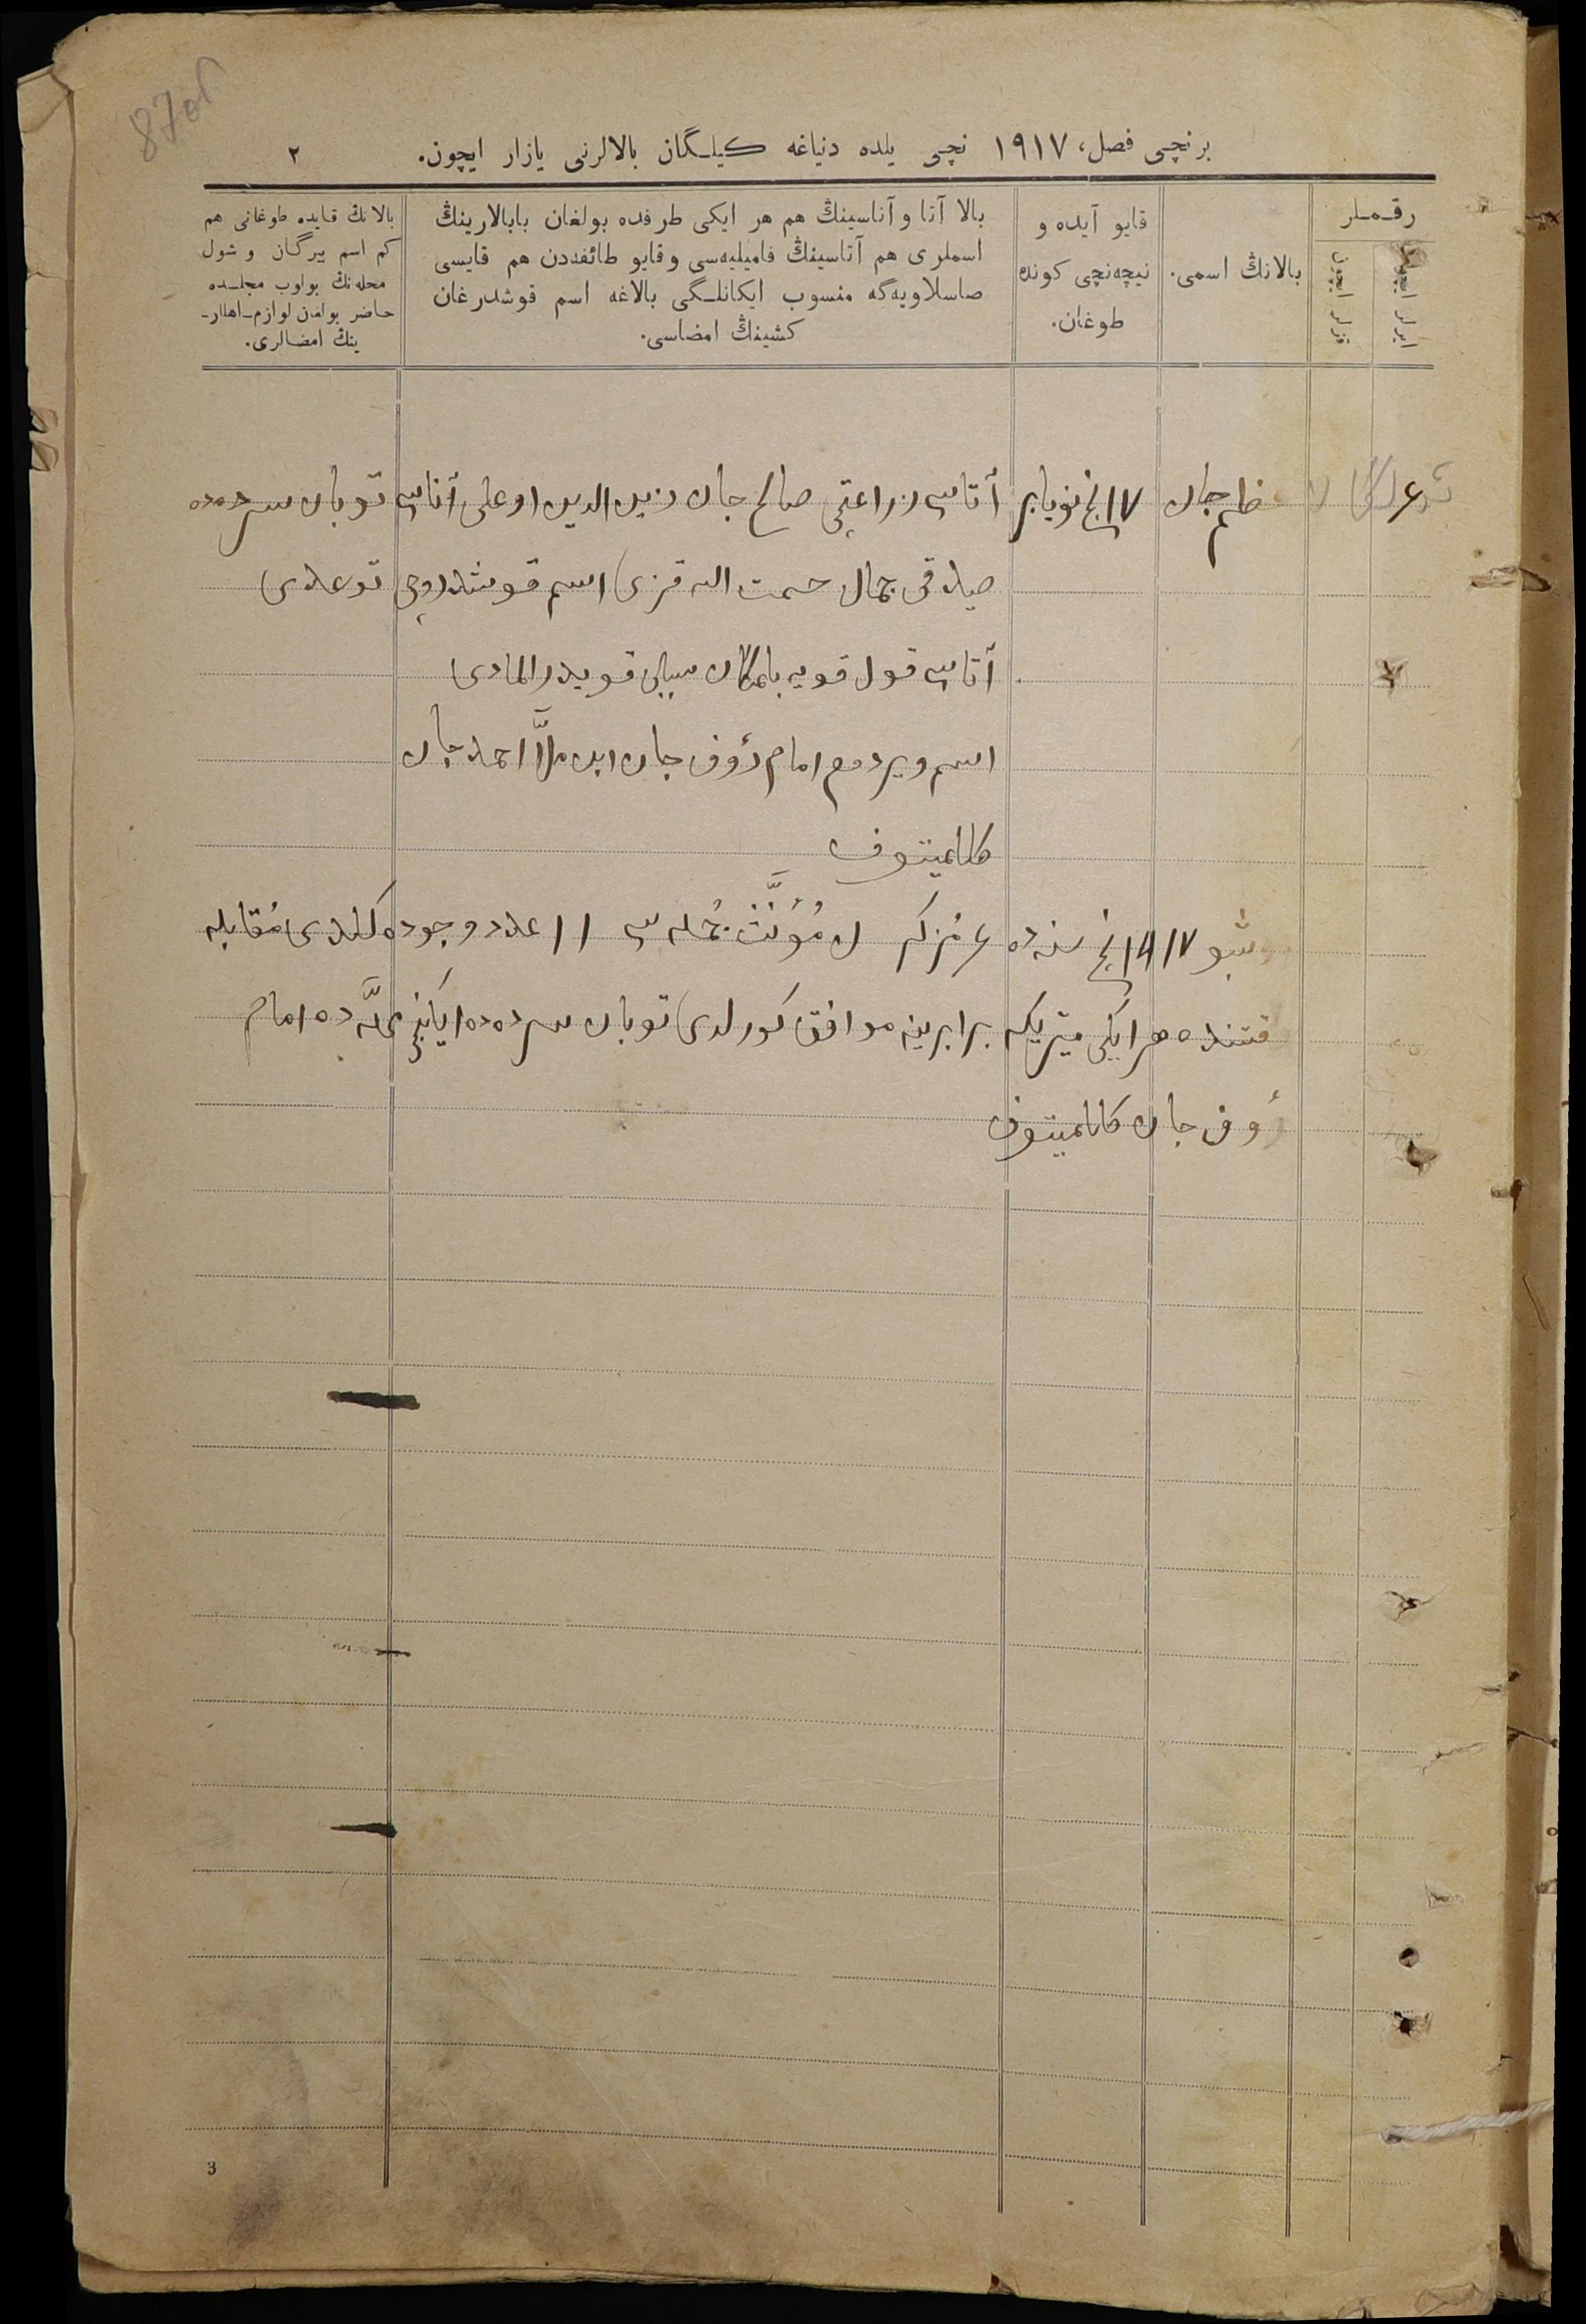 87об
برنچی فصل، ١٩١٧ نچی یلده دنیاغه کیلگان بالالرنی یازار ایچون.
٢
رقملر
ایرلر ایچون
قزلر ایچون
بالانڭ اسمی.
قایو آیده و
نیچه‌نچی کونده
طوغان.
بالا آتا و آناسینڭ هم هر ایکی طرفده بولغان بابالارینڭ
اسملری هم آتاسینڭ فامیلیه‌سی و قایو طائفه‌دن هم قایسی
صاسلاویه‌گه منسوب ایکانلگی بالاغه اسم قوشدرغان
کشینڭ امضاسی.
بالانڭ قایده طوغانی هم
کم اسم بیرگان و شول
محله‌نڭ بولوب مجلسده
حاضر بولغان لوازم اهللر-
ینڭ امضالری.
جان ١٧ نچی نویابر آتاسی زراعتچی صالح جان زین الدین اوغلی آناسی توبان سرده‌ده
جمال حسمت الله قزی اسم قوشدروچی توغدی
آتاسی قول قویه بلمگان سببلی قویدر المادی
اسم ویردم امام رؤف جان ابن ملّا احمد جان
کالمیتوف
شبو ١٩١٧ نچی سنه‌ده ٤ مزکر ٧ مُؤنَّث جُمله‌سی ١١ عدد وجوده کلدی مُقابله
وقتنده هر ایکی متریکه برابرینه موافق کورلدی توبان سرده‌ده ایکنچی محلّه‌ده امام
رؤف جان کالمیتوف
3